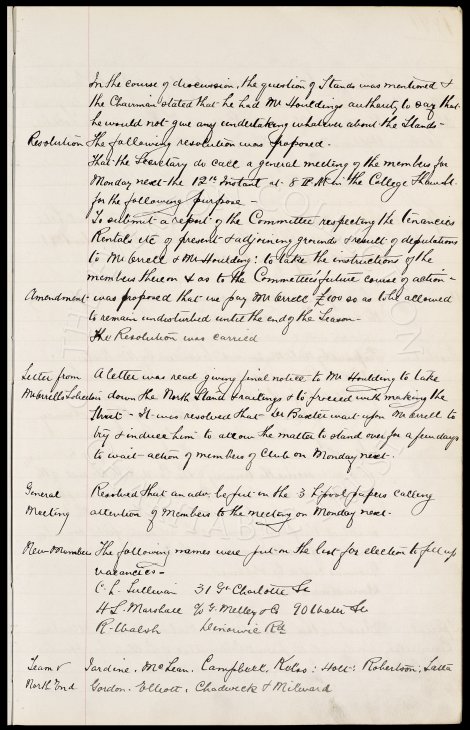 In the course of discussion, the question of Stands was mentioned &
the Chairman stated that he had Mr Houldings authority to say that
he would not give any undertaking whatever about the Stands -
Resolution The following resolution was proposed.
That the Secretary do call a general meeting of the members for
Monday next the 12th Instant at 8 P.M in the College Shaw St
for the following purpose -
To submit a report of the Committee respecting the Tenancies
Rentals etc of present & adjoining grounds & result of deputations
to Mr Orrell & Mr Houlding: to take the instructions of the
members thereon & as to the Committee's future course of action -
Amendment - was proposed that we pay Mr Orrell £100 so as to be allowed
to remain undisturbed until the end of the Season -
The Resolution was carried
Letter from A letter was read giving final notice to Mr Houlding to take
Mr Orrell's Solicitors down the North Stand & railings & to proceed with making the
Street - It was resolved that Dr Baxter wait upon Mr Orrell to
try & induce him to allow the matter to stand over for a few days
to wait action of members of Club on Monday next.
General Resolved that an adv. be put in the 3 L'pool papers calling
Meeting attention of Members to the meeting on Monday next.
New Members The following names were put on the list for election to fill up
vacancies -
C. L. Sullivan 31 Gt Charlotte St
H. S. Marshall c/o G. Melly & Co 90 Water St
R. Walsh Dinorwic Rd
Team v Jardine. McLean. Campbell, Kelso: Holt: Robertson, Latta
North End Gordon. Elliott. Chadwick & Milward